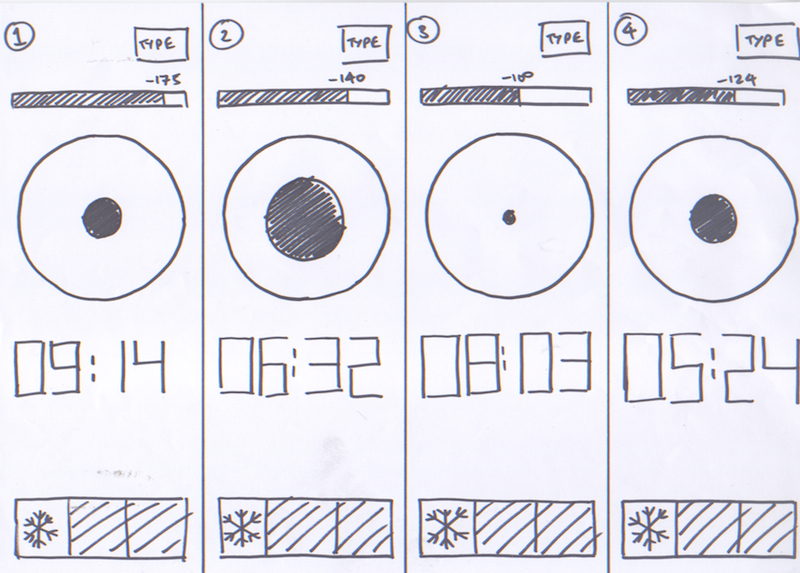 1 TYPE
-175
09:14
2 TYPE
-140
06:32
3 TYPE
-100
08:03
4 TYPE
-124
05:24